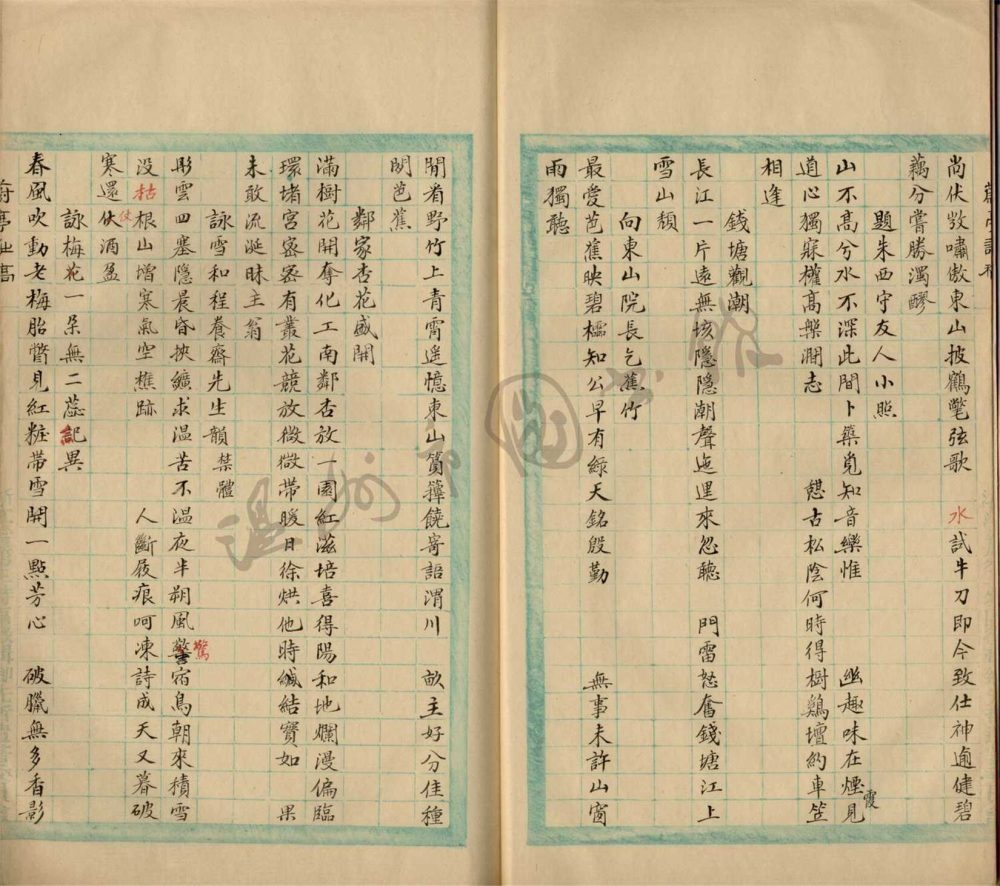 尚伏攷嘯傲東山披鶴氅弦歌 水試牛刀即今致仕神逾健碧
藕分嘗勝濁醪
題朱西守友人小照
山不高兮水不深此間卜築覓知音樂惟 幽趣味在煙霞見
道心獨寐權高槃澗志 憇古松陰何時得樹鷄壇約車笠
相逢
錢塘觀潮
長江一片遠無垓隱隱潮聲迤里來忽聽 門雷怒奮錢塘江上
雪山頹
向東山院長乞蕉竹
最愛芭蕉映碧櫺知公早有綠天銘殷勤 無事未許山窗
雨獨聽
閒看野竹上青霄遙憶東山篔籜饒寄語渭川 畝主好分佳種
閉芭蕉
鄰家杏花盛開
滿樹花開奪化工南鄰杏放一園紅滋培喜得陽和地爛漫偏臨
環堵宮密密有叢花競放微微帶暖日徐烘他時緘結寶如 果
未敢流涎昧主翁
詠雪和程養齋先生韻禁體
彤雲四塞隱晨昏挾纊求温苦不温夜半朔風驚宿鳥朝來積雪
没枯根山增寒氣空樵跡 人斷屐痕呵凍詩成天又暮破
寒還伏酒盆
詠梅花一朵無二蕊紀異
春風吹動老梅胎瞥見紅粧帶雪開一點芳心 破臘無多香影